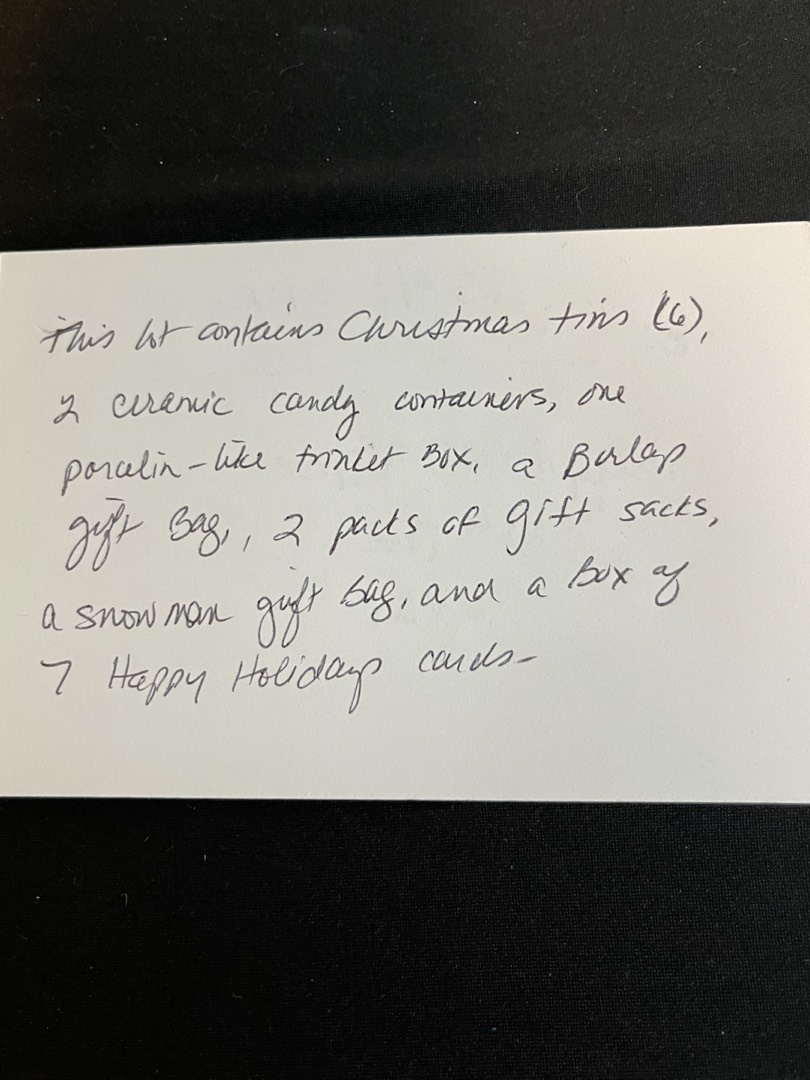 This lot contains Christmas tins (6),
2 ceramic candy containers, one
porcelin-like trinket Box, a Burlap
gift Bag,, 2 packs of gift sacks,
a snowman gift bag, and a Box of
7 Happy Holidays cards-